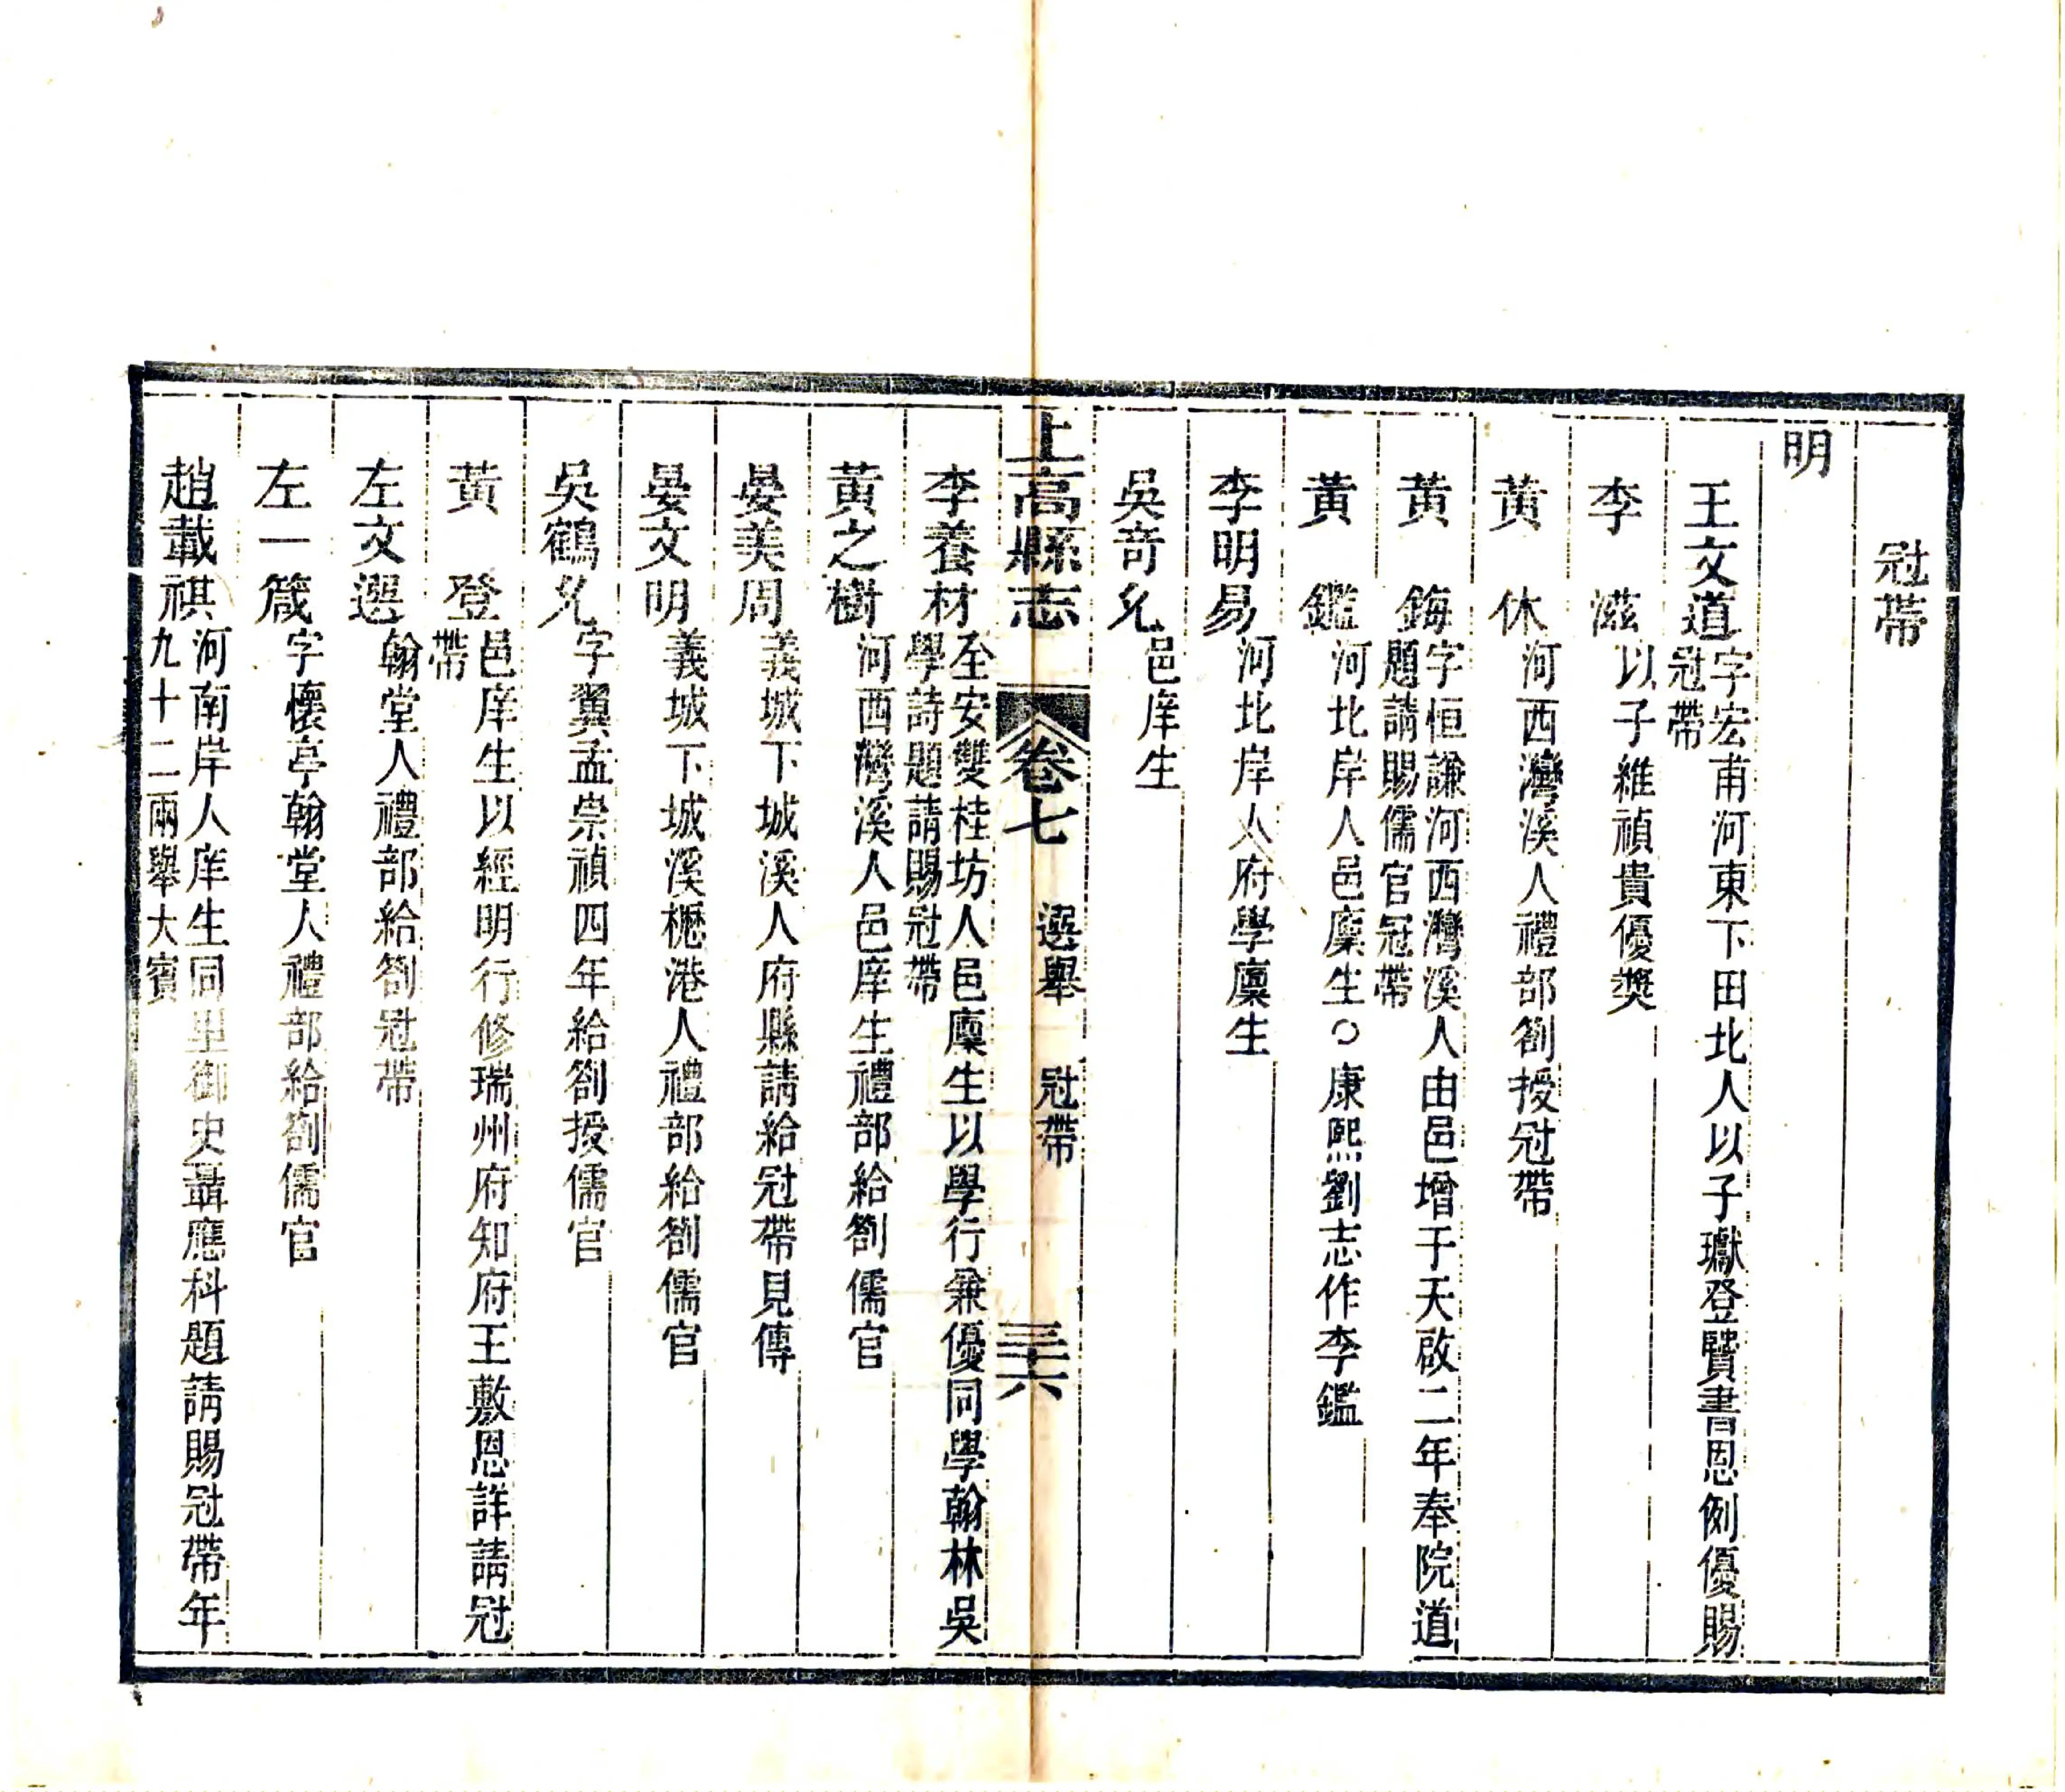 冠帶
明
王文道字宏甫河東下田北人以子瓛登賢書恩例優賜冠帶
李 滋以子維禎貴優奬
黃 休河西灣溪人禮部劄授冠帶
黃 鋂字恒謙河西灣溪人由邑增于天啟二年奉院道題請賜儒官冠帶
黃 鑑河北岸人邑廩生○康熙劉志作李鑑
李明易河北岸人府學廩生
吳奇允邑庠生
上高縣志 卷七 選舉 冠帶 三十六
李養材至安雙桂坊人邑廩生以學行兼優同學翰林吳學詩題請賜冠帶
黃之樹河西灣溪人邑庠生禮部給劄儒官
晏美周義城下城溪人府縣請給冠帶見傳
晏文明義城下城溪櫪港人禮部給劄儒官
吳鶴允字翼孟崇禎四年給劄授儒官
黃 登邑庠生以經明行修瑞州府知府王敷恩詳請冠帶
左文選翰堂人禮部給劄冠帶
左一箴字懷亭翰堂人禮部給劄儒官
趙載祺河南岸人庠生同里御史聶應科題請賜冠帶年九十二兩舉大賓